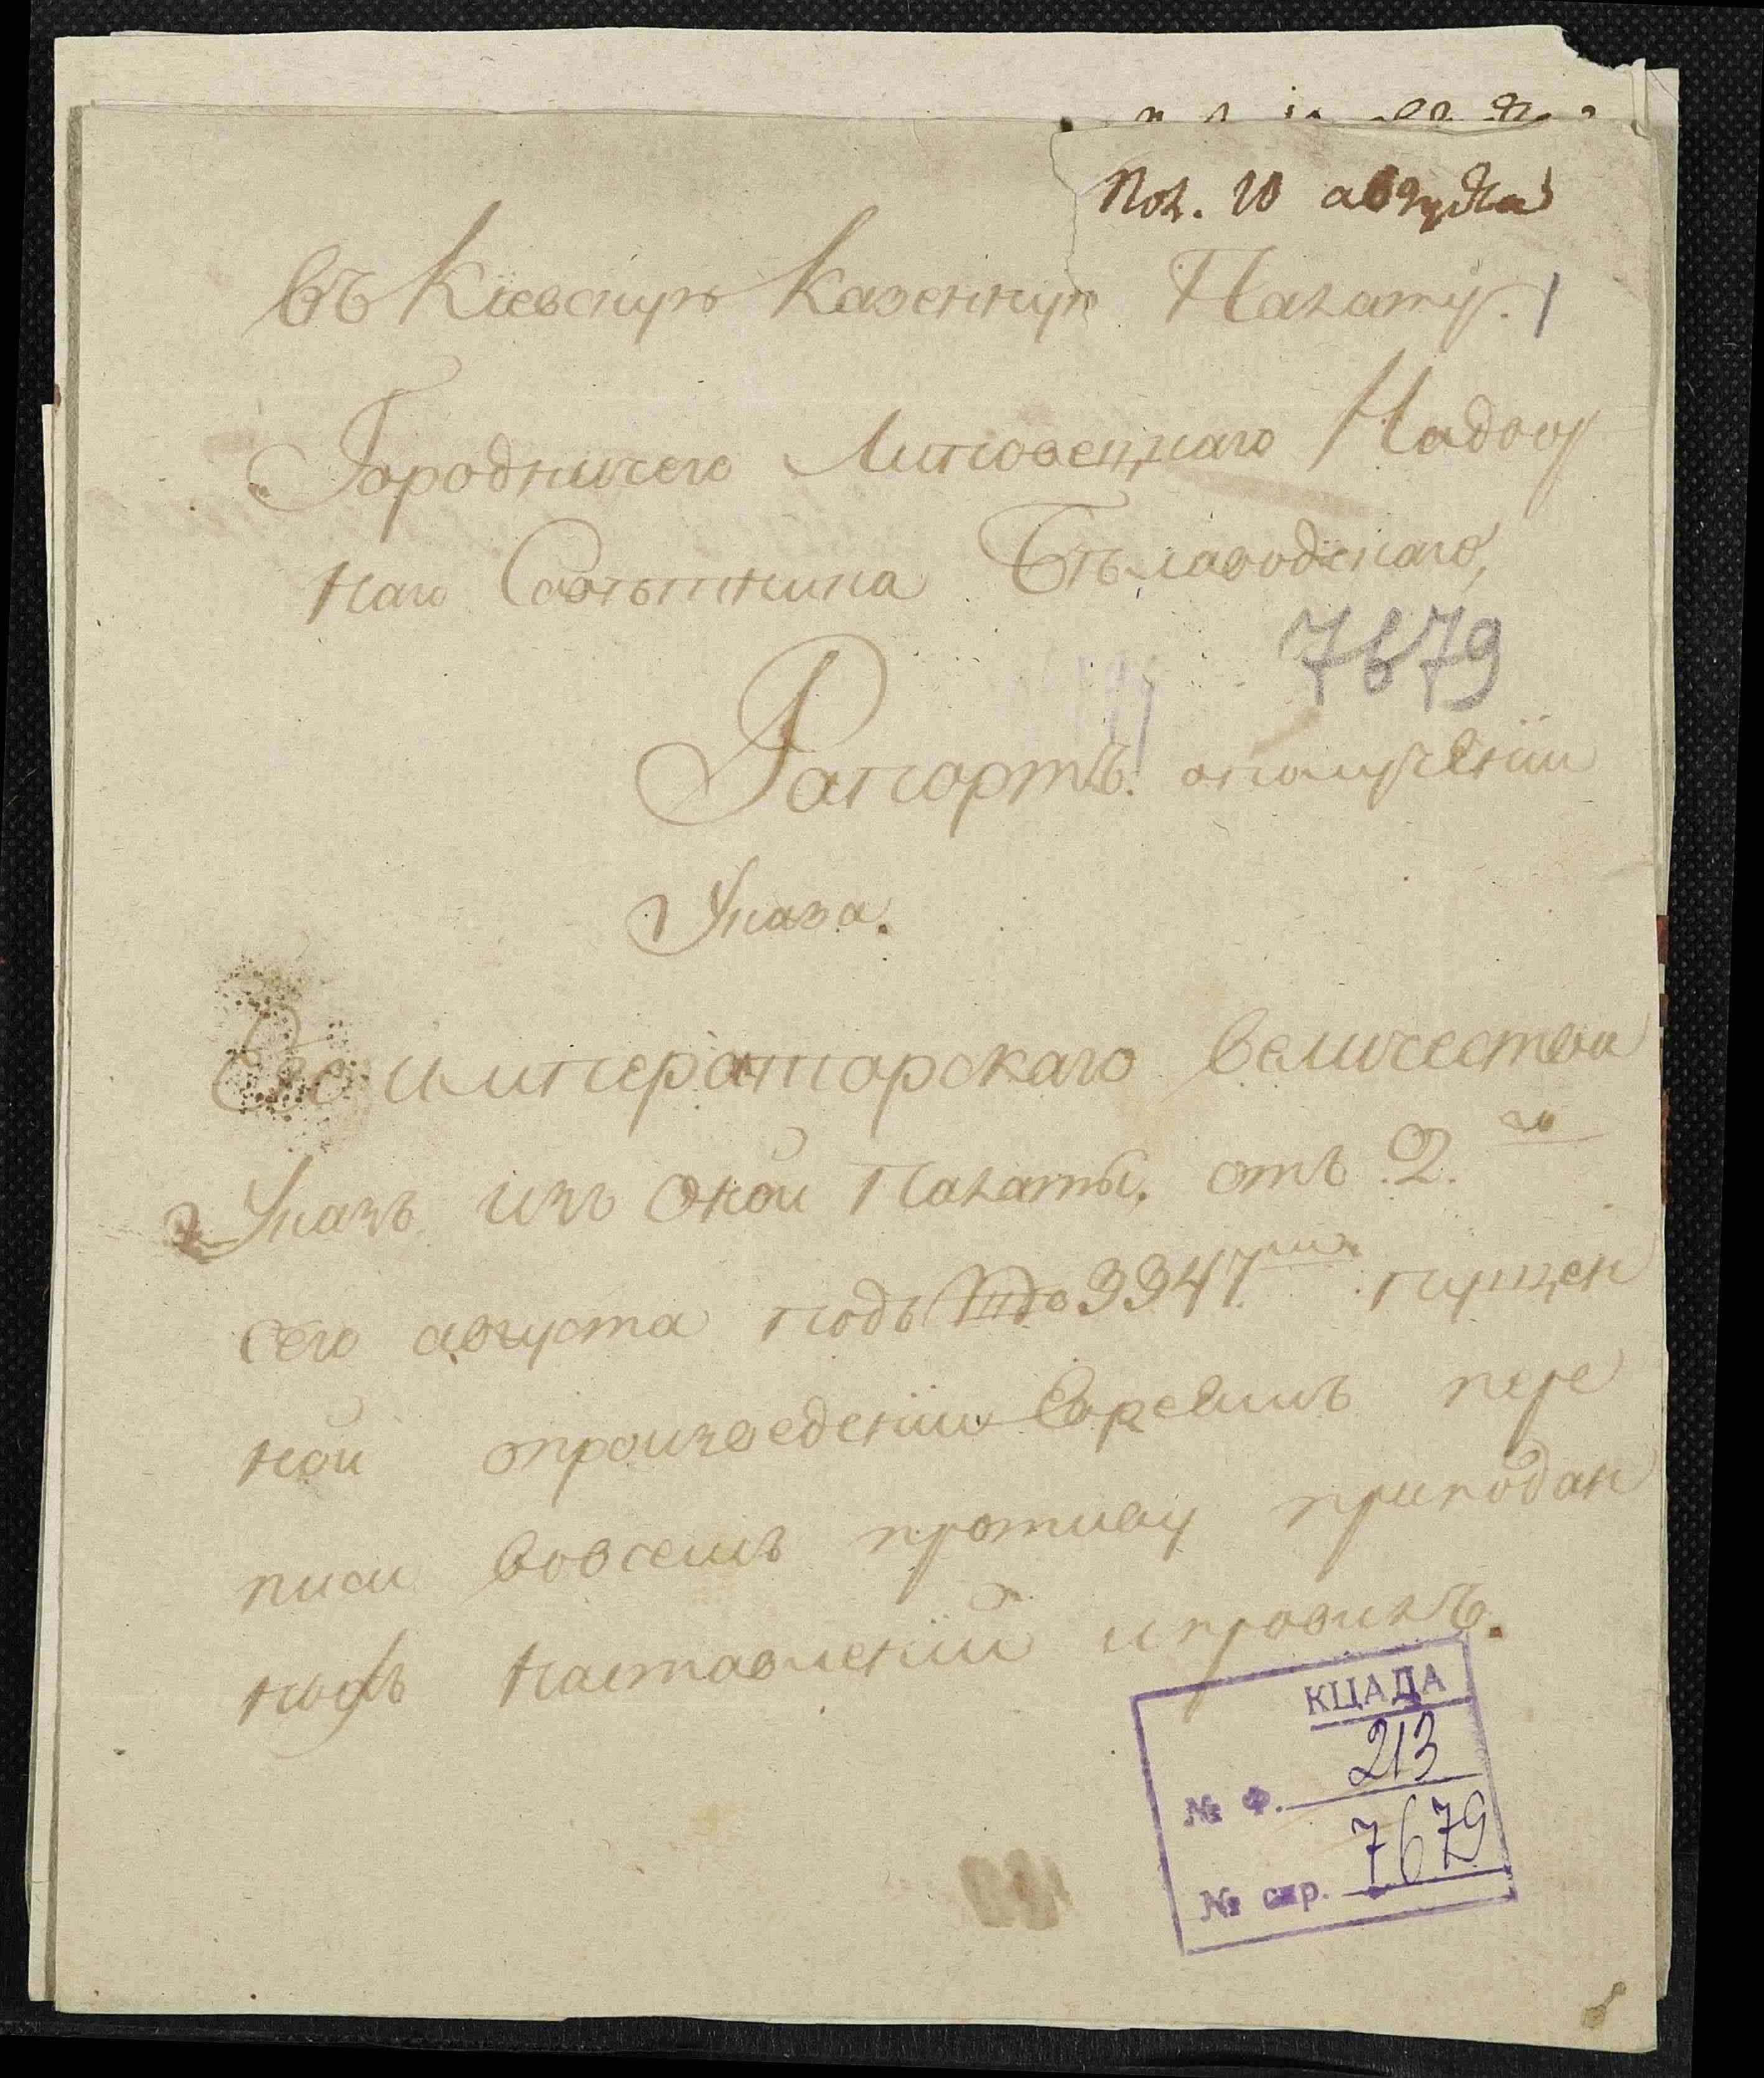 Пол. 10 августа
Въ Кіевскую Казенную Палату.
Городничего Липовецкаго Надвор
наго Совѣтника Бѣлаводскаго,
7679
Рапортъ. ополученіи
Указа.
Его императорскаго величества
Указъ изъ оной Палаты, отъ 2.го
сего августа подъ 3347мъ пущен
ной опроизведеніи Евреямъ пере
писи вовсемъ противу приподан
ныхъ наставленій иправилъ.
КЦАДА
№ ф. 213
№ спр. 7679